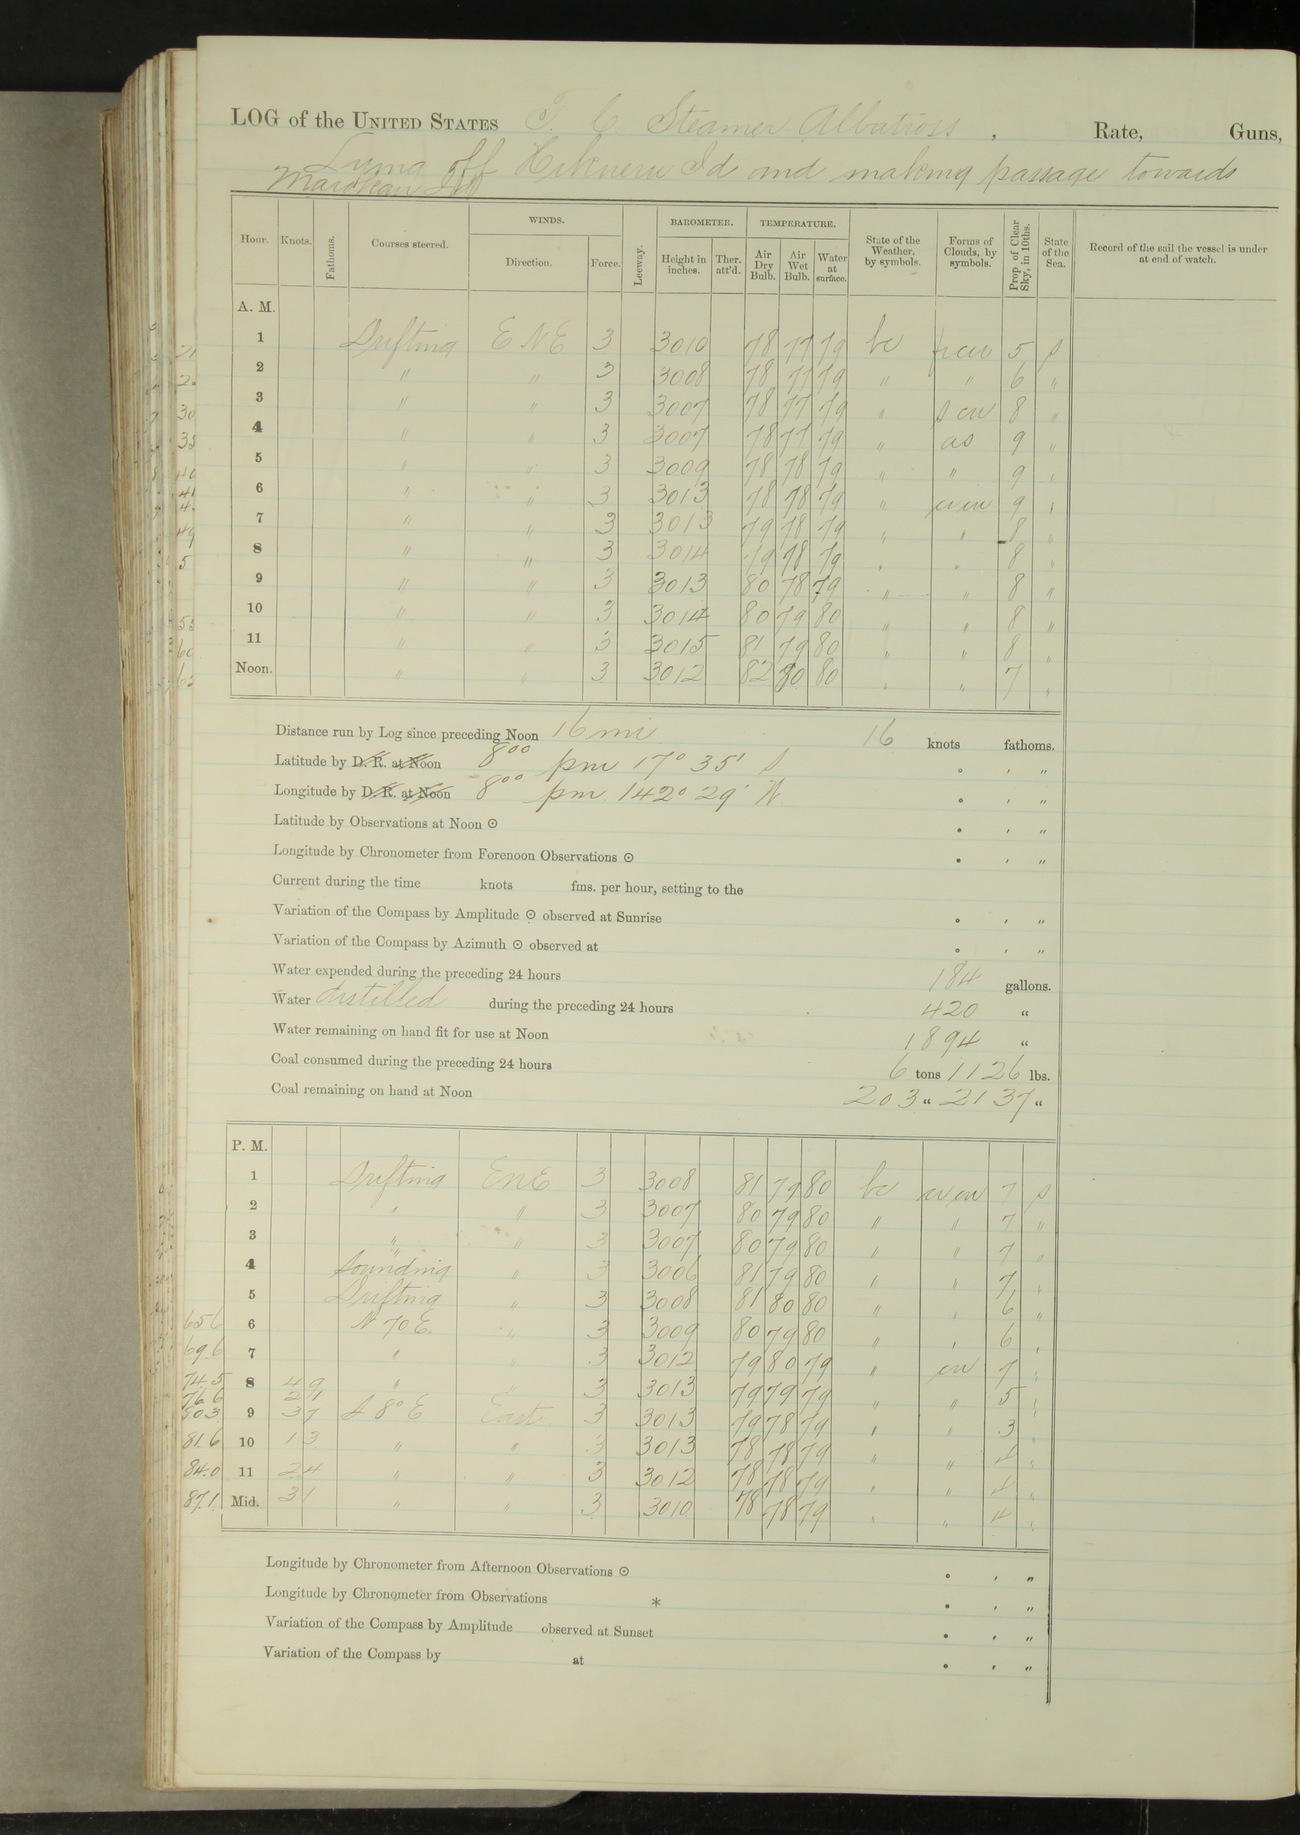 LOG of the UNITED STATES F. C. Steamer Albatross, Rate, Guns,
Lying off Hikueru Id and making passage towards
Marokau Id
Hour. Knots. Fathoms. Courses steered. WINDS. Direction. Force. Leeway. BAROMETER. Height in inches. Ther. att'd. TEMPERATURE. Air Dry Bulb. Air Wet Bulb. Water at surface. State of the Weather, by symbols. Forms of Clouds, by symbols. Prop. of Clear Sky, in 10ths. State of the Sea. Record of the sail the vessel is under at end of watch.
A. M.
1 Drifting ENE 3 3010 78 77 79 bc 5 s
2 " " 3 3008 78 77 79 " " 6 "
3 " " 3 3007 78 77 79 " s cu 8 "
4 " " 3 3007 78 77 79 " as 9 "
5 " " 3 3009 78 78 79 " 9 "
6 " " 3 3013 78 78 79 " 9 "
7 " " 3 3013 79 78 79 " " 8 "
8 " " 3 3014 79 78 79 " " 8 "
9 " " 3 3013 80 78 79 " " 8 "
10 " " 3 3014 80 79 80 " " 8 "
11 " " 3 3015 81 79 80 " " 8 "
Noon. " " 3 3012 82 80 80 " " 7 "
Distance run by Log since preceding Noon 16 mi 16 knots fathoms.
Latitude by D. R. at Noon 8⁰⁰ pm 17° 35' S ° ' "
Longitude by D. R. at Noon 8⁰⁰ pm 142° 29' W ° ' "
Latitude by Observations at Noon ⊙ ° ' "
Longitude by Chronometer from Forenoon Observations ⊙ ° ' "
Current during the time knots fms. per hour, setting to the
Variation of the Compass by Amplitude ⊙ observed at Sunrise ° ' "
Variation of the Compass by Azimuth ⊙ observed at ° ' "
Water expended during the preceding 24 hours 184 gallons.
Water distilled during the preceding 24 hours 420 "
Water remaining on hand fit for use at Noon 1894 "
Coal consumed during the preceding 24 hours 6 tons 1126 lbs.
Coal remaining on hand at Noon 203 " 2137 "
P. M.
1 Drifting ENE 3 3008 81 79 80 bc 7 s
2 " " 3 3007 80 79 80 " " 7 "
3 " " 3 3007 80 79 80 " " 7 "
4 Sounding " 3 3006 81 79 80 " " 7 "
5 Drifting " 3 3008 81 80 80 " " 6 "
65.6 6 N 70 E. " 3 3009 80 79 80 " " 6 "
69.6 7 " " 3 3012 79 80 79 " cu 7 "
74.5 8 4 9 " " 3 3013 79 79 79 " " 5 "
76.6 2 1
80.3 9 3 7 S 8° E East 3 3013 79 78 79 " " 3 "
81.6 10 1 3 " " 3 3013 78 78 79 " " 4 "
84.0 11 2 4 " " 3 3012 78 78 79 " " 4 "
87.1 Mid. 3 1 " " 3 3010 78 78 79 " " 4 "
Longitude by Chronometer from Afternoon Observations ⊙ ° ' "
Longitude by Chronometer from Observations * ° ' "
Variation of the Compass by Amplitude observed at Sunset ° ' "
Variation of the Compass by at ° ' "